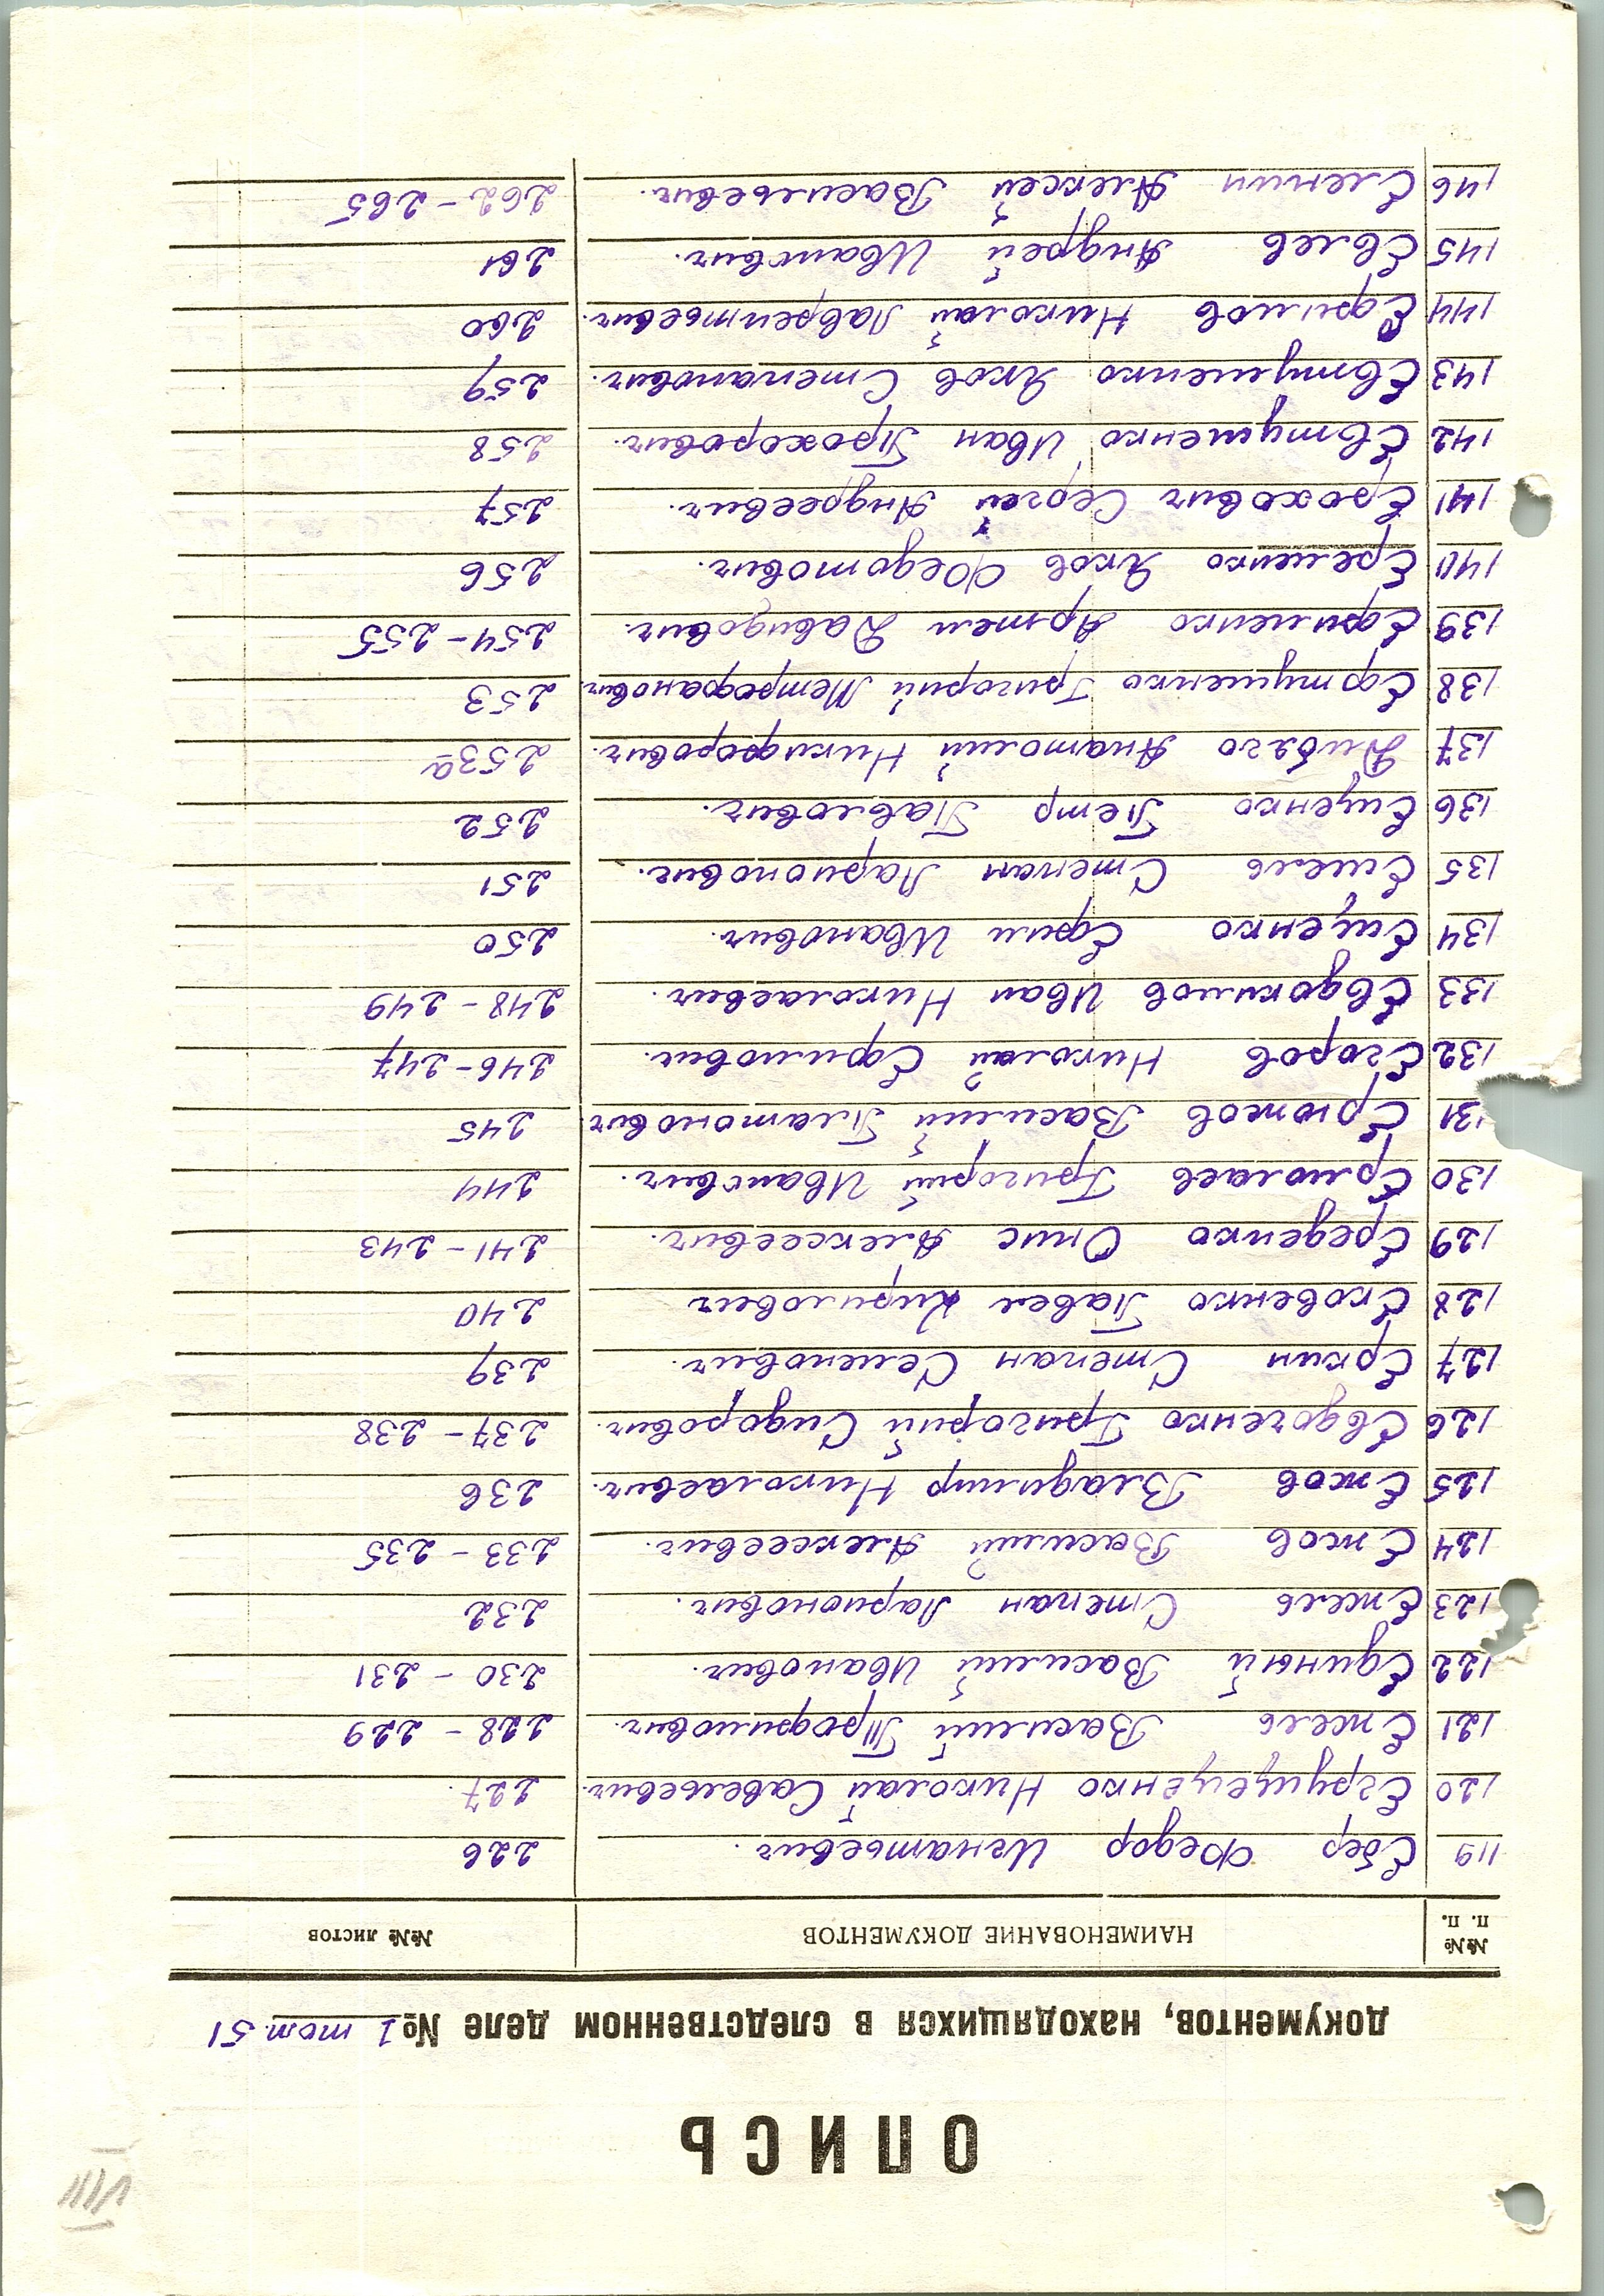 VIII
ОПИСЬ
документов, находящихся в следственном деле № 1 том 51
№№ п. п. НАИМЕНОВАНИЕ ДОКУМЕНТОВ №№ листов
119 Ебер Федор Игнатьевич. 226
120 Егрущенко Николай Савельевич. 227.
121 Ежель Василий Трофимович. 228 - 229
122 Единый Василий Иванович. 230 - 231
123 Ежель Степан Ларионович. 232
124 Ежов Василий Алексеевич. 233 - 235
125 Ежов Владимир Николаевич. 236
126 Евдоченко Григорий Сидорович. 237 - 238
127 Еркин Степан Семенович. 239
128 Ековенко Павел Кирилович 240
129 Ереденко Онис Алексеевич. 241 - 243
130 Ермолаев Григорий Иванович. 244
131 Ерюков Василий Платонович. 245
132 Егоров Николай Ефимович. 246 - 247
133 Евдокимов Иван Николаевич. 248 - 249
134 Ещенко Ефим Иванович. 250
135 Емель Степан Ларионович. 251
136 Ещенко Петр Павлович. 252
137 Дибяго Анатолий Никифорович. 253а
138 Ефтушенко Григорий Метрофанович. 253
139 Ефименко Артем Давидович. 254 - 255
140 Еременко Яков Федотович. 256
141 Ерохович Сергей Андреевич. 257
142 Евтушенко Иван Прохорович. 258
143 Евтушенко Яков Степанович. 259
144 Ефимов Николай Лаврентьевич. 260
145 Евлев Андрей Иванович. 261
146 Еленин Алексей Васильевич. 262 - 265